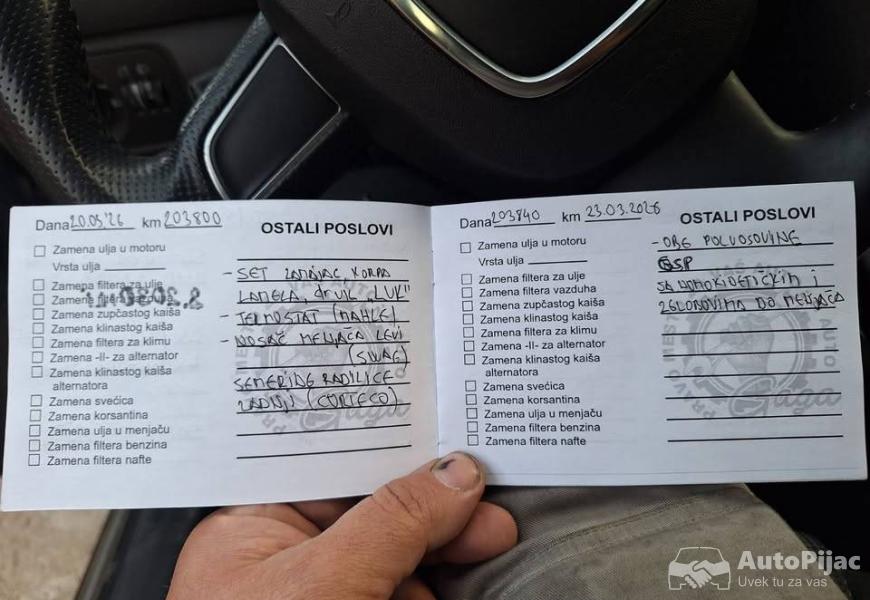 Dana 20.03.'26 km 203800
OSTALI POSLOVI
Zamena ulja u motoru
Vrsta ulja
Zamena filtera za ulje
Zamena filtera vazduha
Zamena zupčastog kaiša
Zamena klinastog kaiša
Zamena filtera za klimu
Zamena -II- za alternator
Zamena klinastog kaiša
alternatora
Zamena svećica
Zamena korsantina
Zamena ulja u menjaču
Zamena filtera benzina
Zamena filtera nafte
- SET ZAMAJAC, KORPA
LAMELA, druk „LUK"
- TERMOSTAT (MAHLE)
- NOSAČ MENJAČA LEVI
(SWAG)
SEMERING RADILICE
ZADNJI (CORTECO)
Dana 203840 km 23.03.2026
OSTALI POSLOVI
Zamena ulja u motoru
Vrsta ulja
Zamena filtera za ulje
Zamena filtera vazduha
Zamena zupčastog kaiša
Zamena klinastog kaiša
Zamena filtera za klimu
Zamena -II- za alternator
Zamena klinastog kaiša
alternatora
Zamena svećica
Zamena korsantina
Zamena ulja u menjaču
Zamena filtera benzina
Zamena filtera nafte
- OBE POLUOSOVINE
GSP
SA HOMOKINETIČKIM i
ZGLOBOVIMA DO MENJAČA
Gaga
AutoPijac
Uvek tu za vas